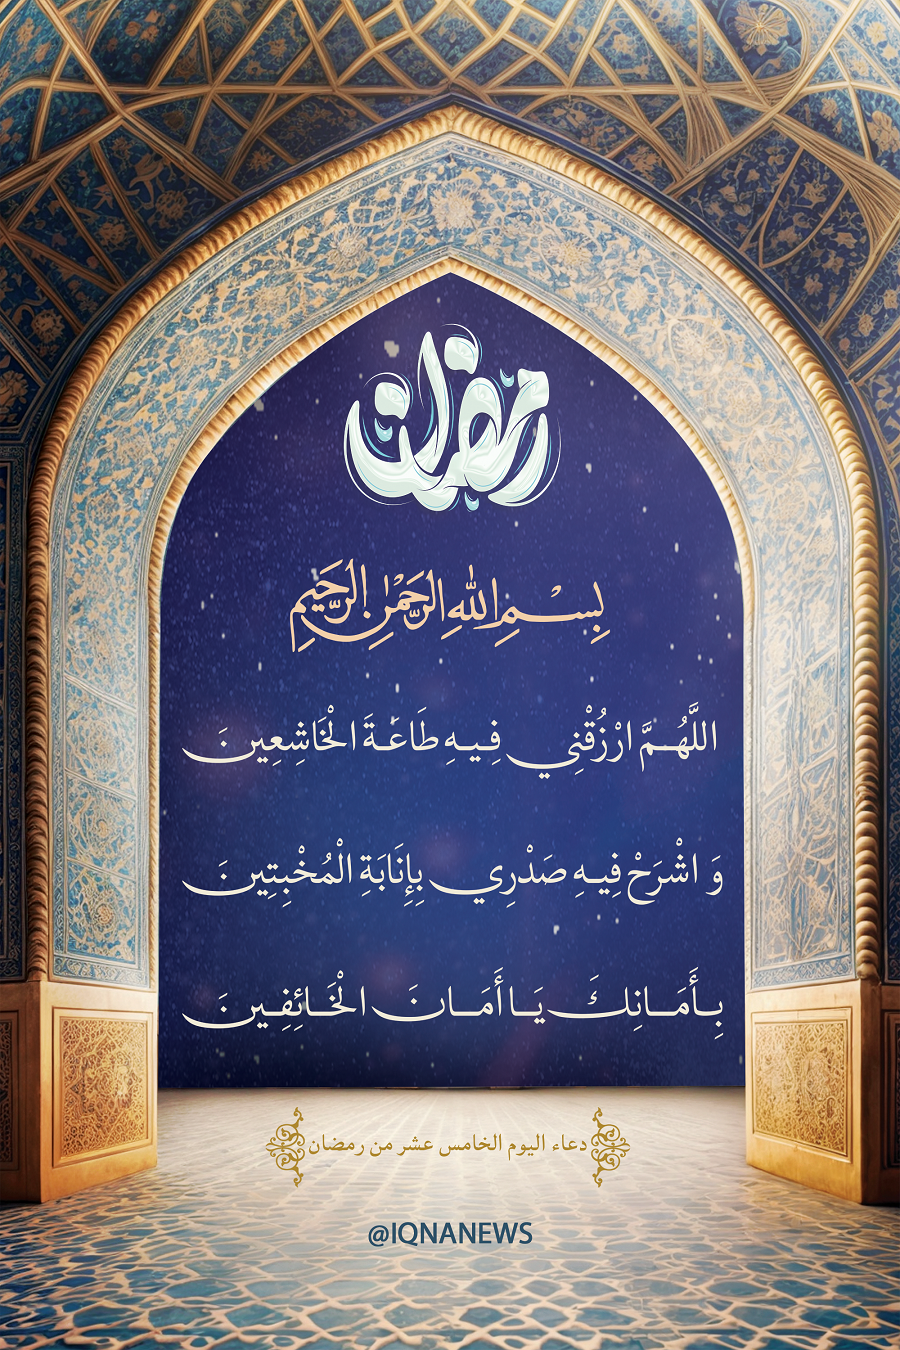 رمضان
بِسْمِ اللهِ الرَّحْمٰنِ الرَّحِيمِ
اللَّهُمَّ ارْزُقْنِي فِيهِ طَاعَةَ الْخَاشِعِينَ
وَ اشْرَحْ فِيهِ صَدْرِي بِإِنَابَةِ الْمُخْبِتِينَ
بِأَمَانِكَ يَا أَمَانَ الْخَائِفِينَ
دعاء اليوم الخامس عشر من رمضان
@IQNANEWS